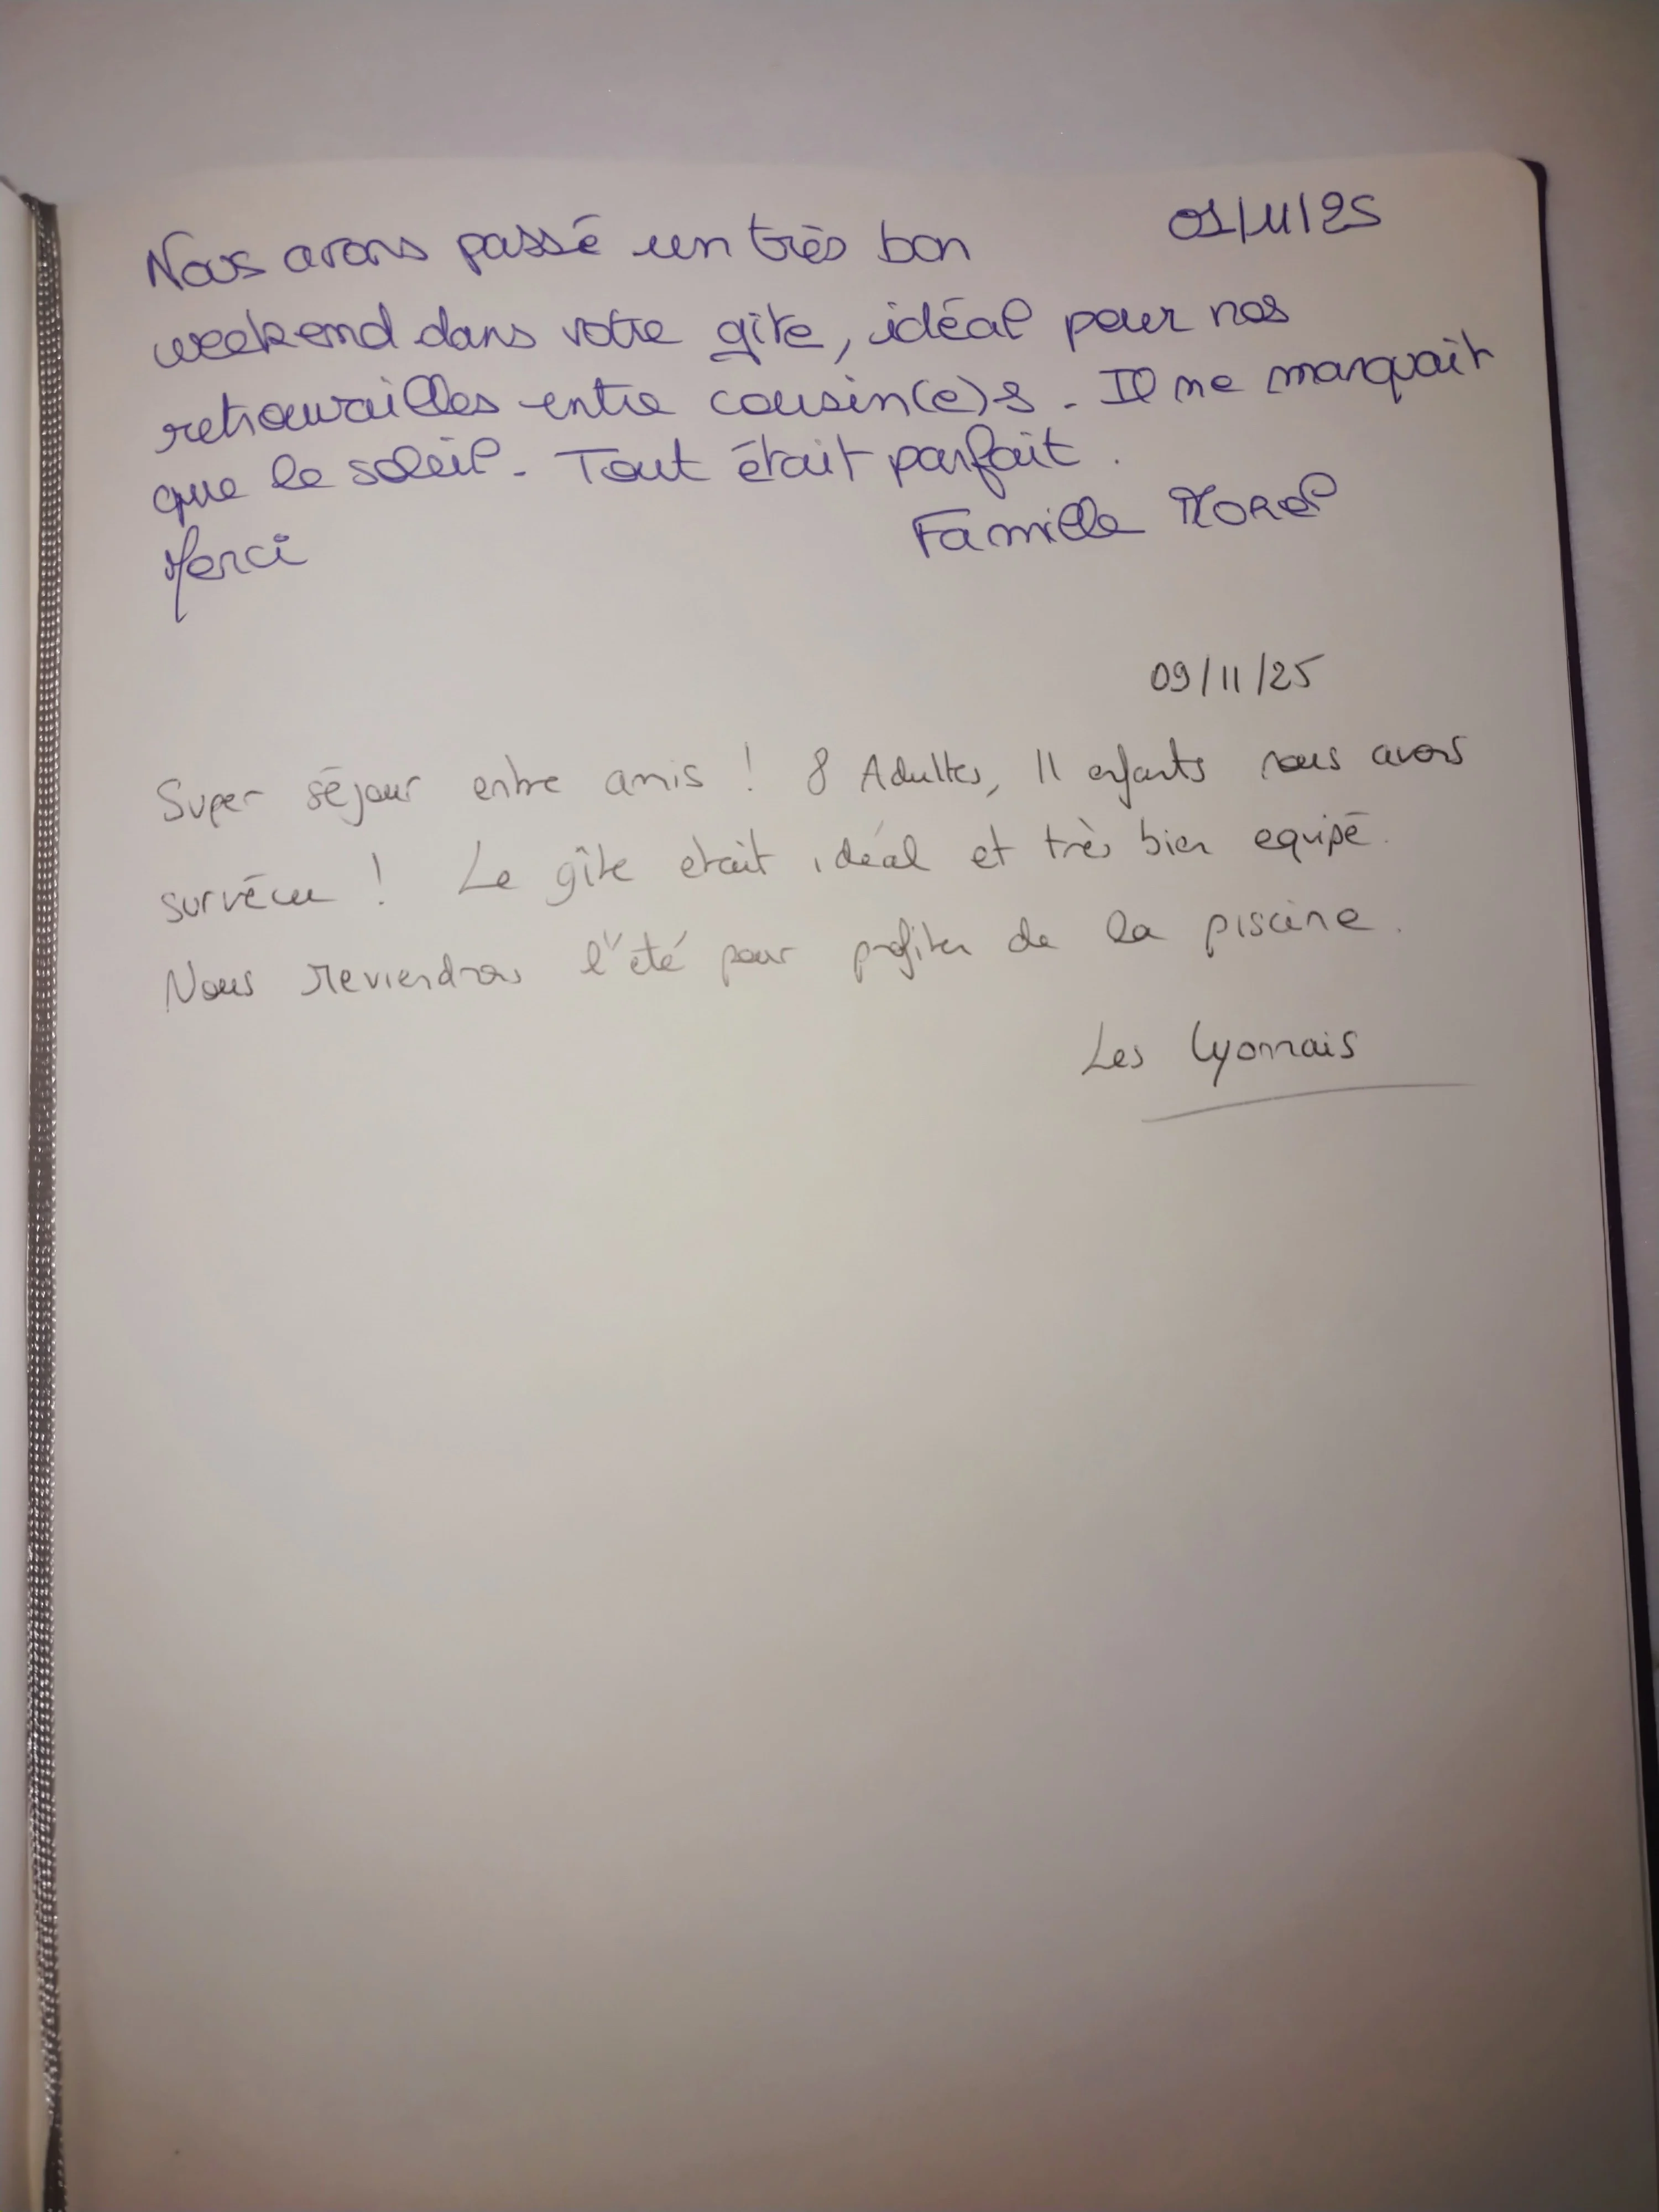 01/11/25
Nous avons passé un très bon
weekend dans votre gîte, idéal pour nos
retrouvailles entre cousin(e)s. Il ne manquait
que le soleil. Tout était parfait.
Merci
Famille MOREL
09/11/25
Super séjour entre amis ! 8 Adultes, 11 enfants nous avons
survécu ! Le gîte etait idéal et très bien equipé.
Nous reviendrons l'été pour profiter de la piscine.
Les Lyonnais